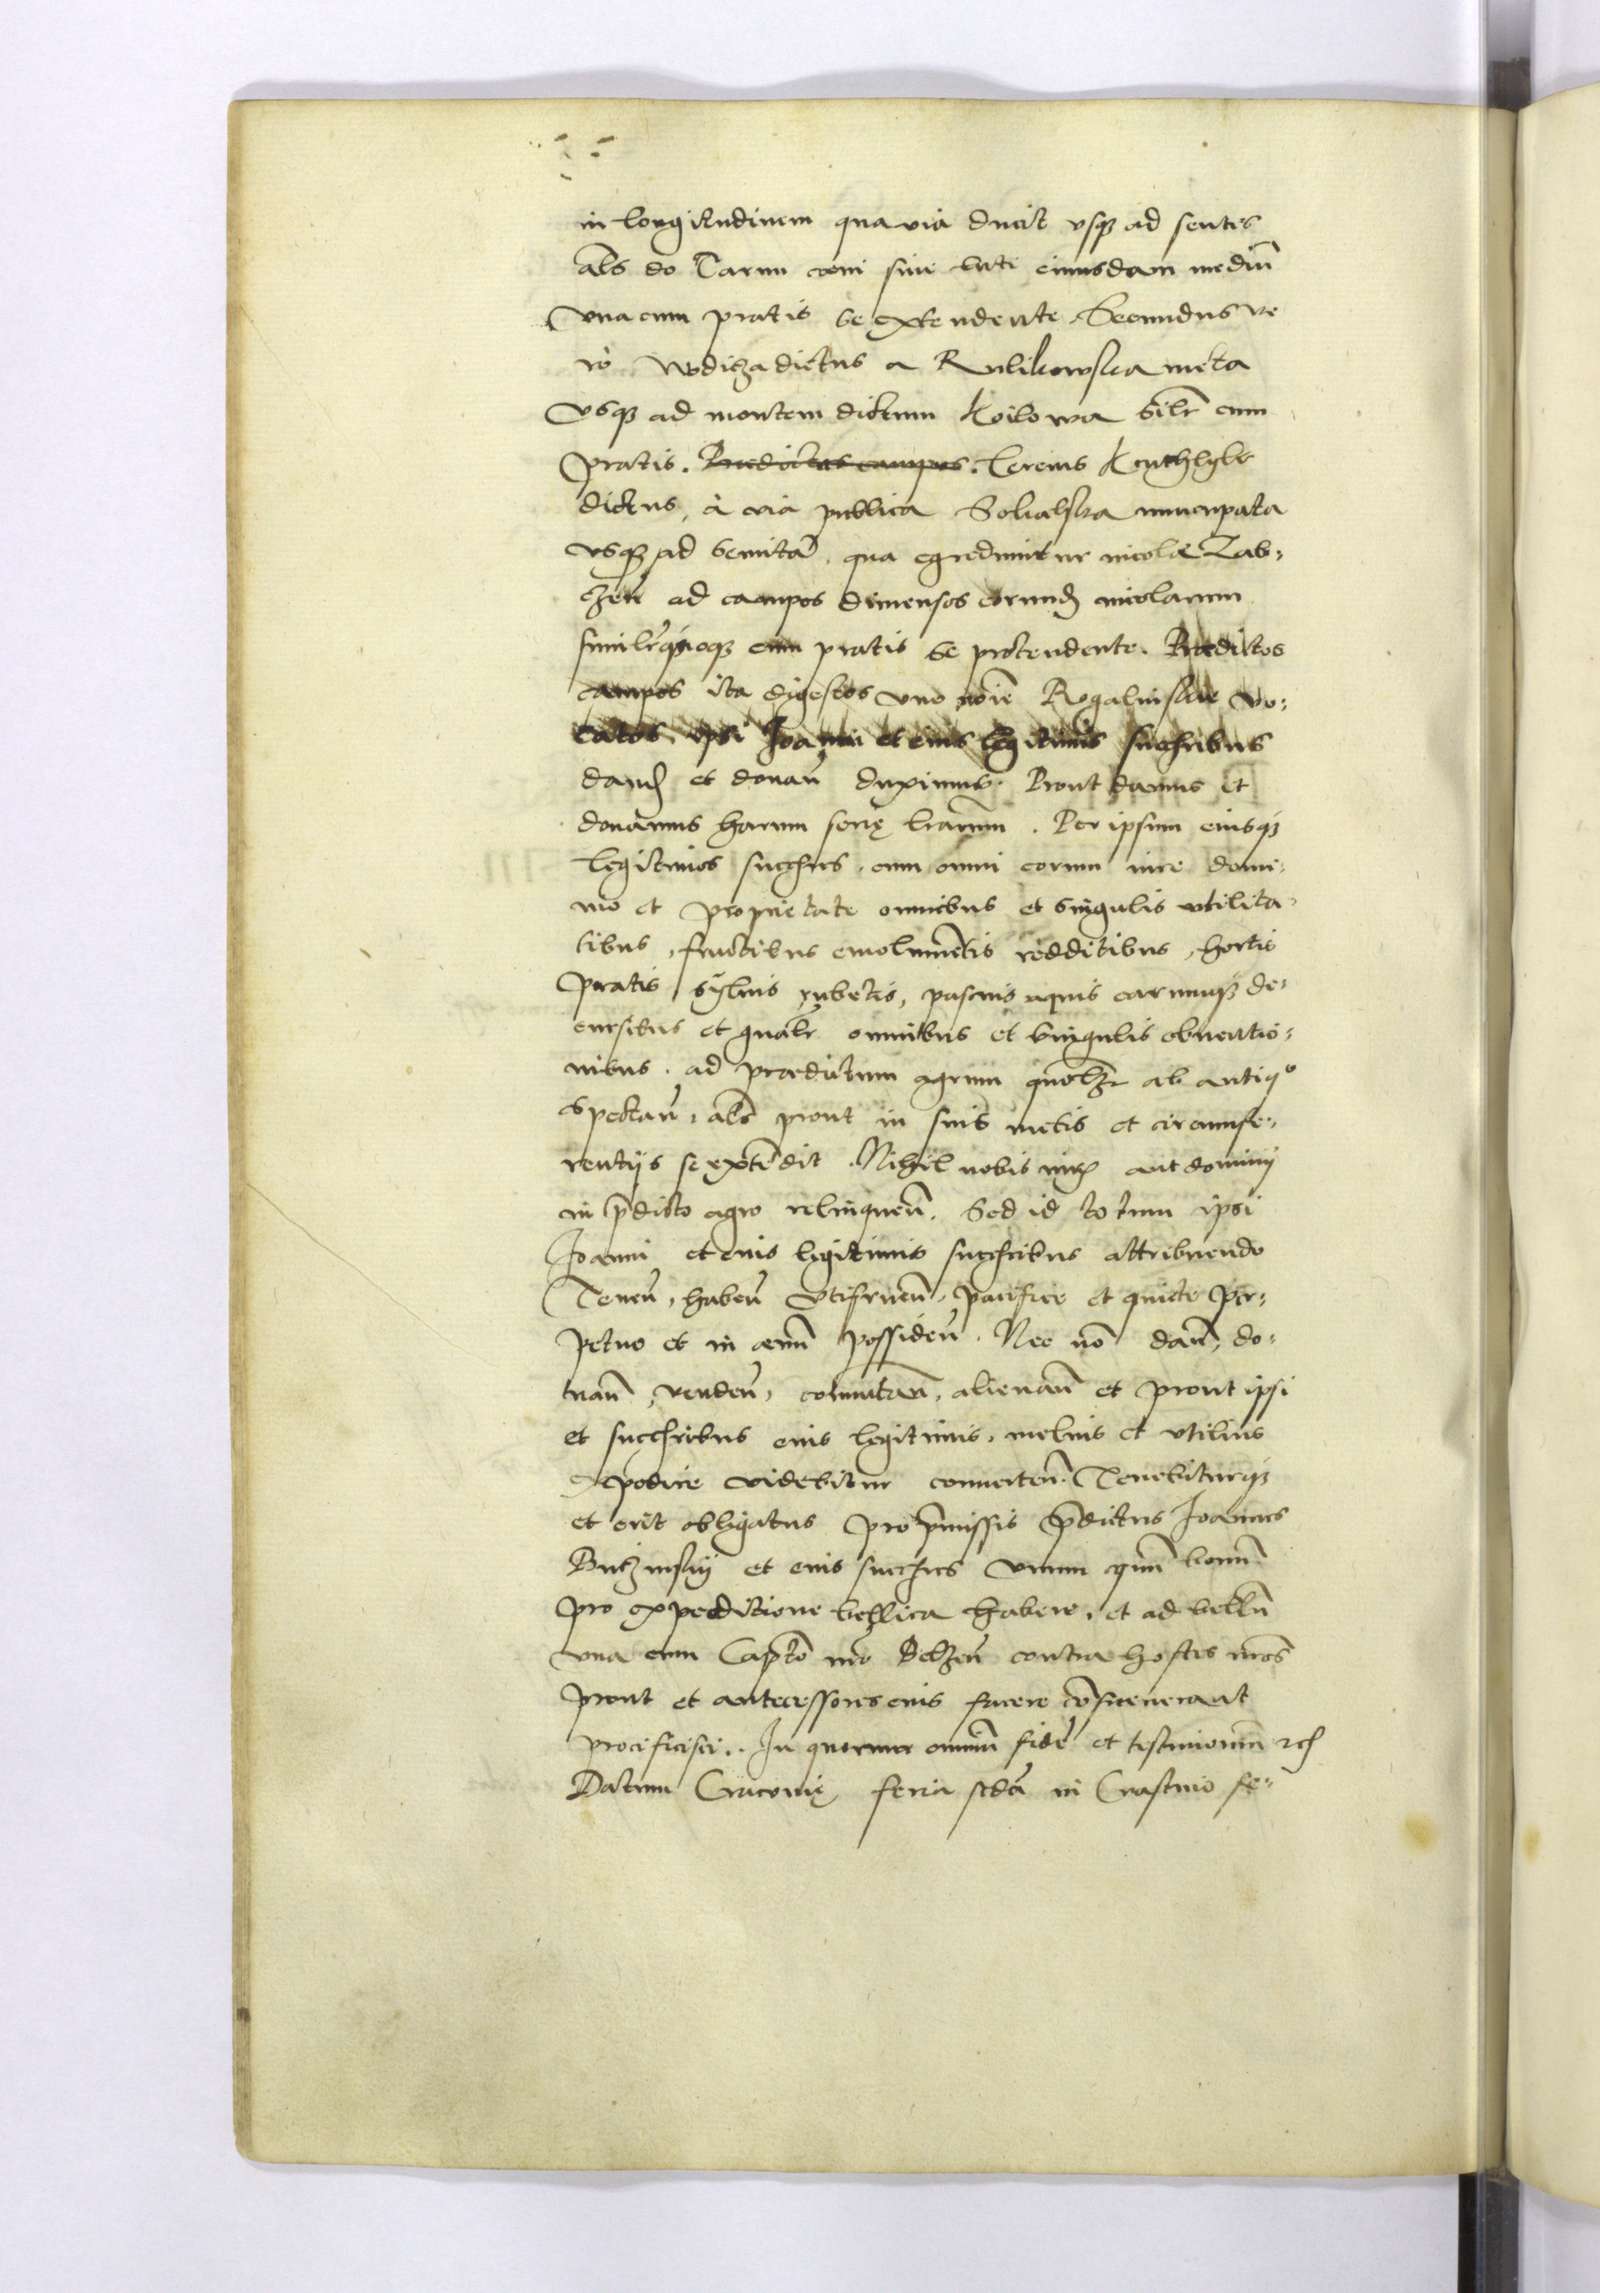 in longitudinem qua via ducit vsq ad sentes
als do Tarnu coeni siue luti cuiusdam mediũ
Vna cum pratis se extendente. Secundus ve
ro Wodicza dictus a Rulikowska meta
Vsq ad montem dictum Koilowa Silr cum
pratis. Prædictos campos. Tercius
dictus, à via publica Sokalska nuncupata
vsq ad semitã qua egrediuntur incolæ Zab=
czeñ ad campos dimensos eorund incolarum
similrquoq cum pratis se protendente. Prædictos
campos ita digestos vno noie Rogalinskie vo=
catos ipsi Joanni et eius legitimis succſſribus
dand et donan duximus. Prout damus et
donamus harum serię lrarum. Per ipsum eiusq
legitimos succſſres cum omni eorum iure domi=
nio et proprietate omnibus et singulis vtilita=
tibus, fructibus emolumẽtis redditibus, hortis
pratis syluis rubetis, pascuis aquis earumq de=
cursibus et gnalr omnibus et singulis obuentio=
nibus. ad prædictum agrum quolzr ab antiqo
spectan. als prout in suis metis et circumfe=
rentijs se extẽdit. Nihil nobis iuris aut dominij
in p̃dicto agro relinquen. Sed id totum ipsi
Joanni et eius legitimis succſſribus attribuendo
Tenen, haben Vtifruen, pacifice et quiete per=
petuo et in æuũ possiden. Nec nõ dan, do=
nan, venden, cõmutan, alienan et prout ipsi
et succſſribus eius legitimis, melius et vtilius
expedire videbitur conuerten. Tenebiturq
et erit obligatus pro p̃missis p̃dictus Joannes
Buczinskij et eius succſſres vnum equũ bonũ
pro expeditione bellica habere, et ad bellũ
vna cum Capto nro Belzen contra hostes nros
prout et antecessores eius facere cõsueuerant
proficisci. In quorum omniũ fidẽ et testimoniũ
Datum Cracouię feria scda in Crastino fe=